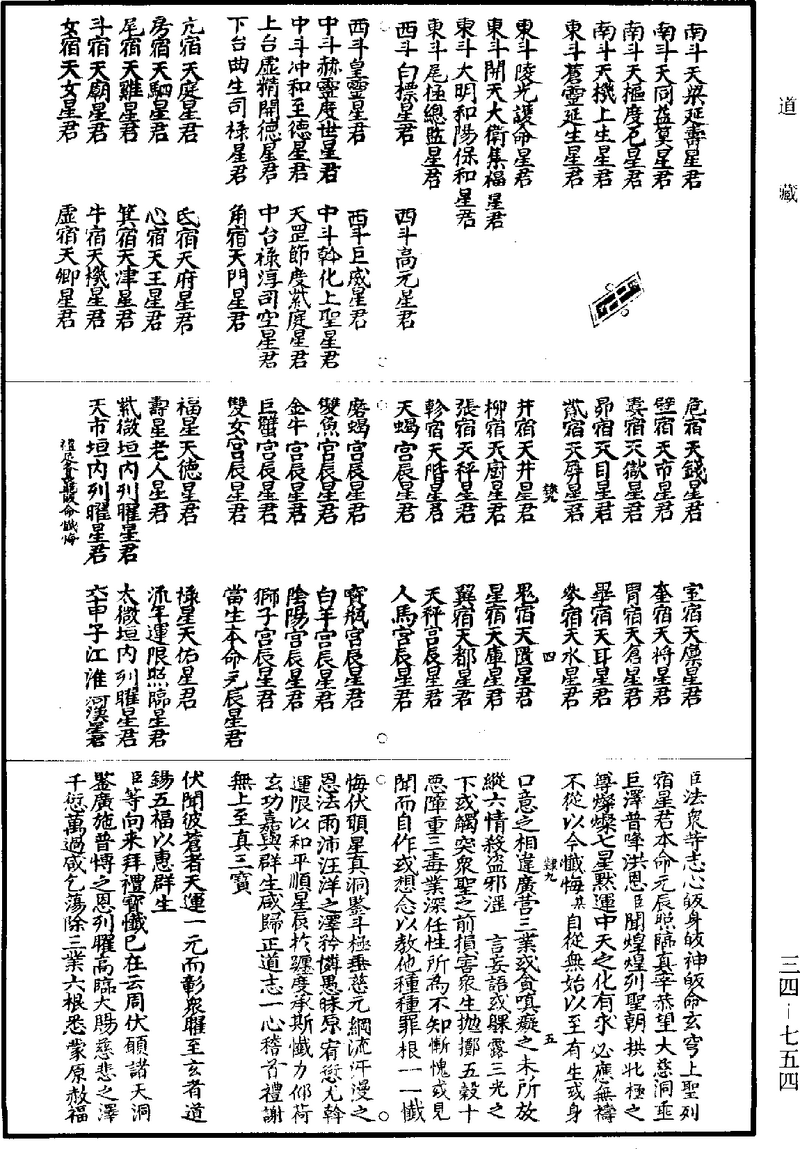 道藏
南斗天梁延壽星君
南斗天同益筭星君
南斗天樞度厄星君
南斗天機上生星君
東斗蒼靈延生星君
東斗陵光護命星君
東斗開天大衛集福星君
東斗大明和陽保和星君
東斗尾極總監星君
西斗白標星君
西斗高元星君
西斗皇靈星君
西斗巨威星君
中斗赫靈度世星君
中斗斡化上聖星君
中斗冲和至德星君
天罡節度紫庭星君
上台虛精開德星君
中台祿淳司空星君
下台曲生司祿星君
角宿天門星君
亢宿天庭星君
氐宿天府星君
房宿天駟星君
心宿天王星君
尾宿天雞星君
箕宿天津星君
斗宿天廟星君
牛宿天機星君
女宿天女星君
虛宿天卿星君
危宿天錢星君
室宿天廩星君
壁宿天市星君
奎宿天將星君
婁宿天獄星君
胃宿天倉星君
昴宿天目星君
畢宿天耳星君
觜宿天屏星君
參宿天水星君
隸九
四
井宿天井星君
鬼宿天匱星君
柳宿天廚星君
星宿天庫星君
張宿天秤星君
翼宿天都星君
軫宿天階星君
天秤宮辰星君
天蝎宮辰星君
人馬宮辰星君
磨蝎宮辰星君
寶瓶宮辰星君
雙魚宮辰星君
白羊宮辰星君
金牛宮辰星君
陰陽宮辰星君
巨蟹宮辰星君
獅子宮辰星君
雙女宮辰星君
當生本命元辰星君
福星天德星君
祿星天佑星君
壽星老人星君
流年運限照臨星君
紫微垣內列曜星君
太微垣內列曜星君
天市垣內列曜星君
空中子江淮河漢星君
禮足資宸皈命懺悔
臣法衆等志心皈身皈神皈命玄穹上聖列
宿星君本命元辰照臨真宰恭望大慈洞垂
巨澤普降洪恩臣聞煌煌列聖朝拱北極之
尊燦燦七星黙運中天之化有求必應無禱
不從以今懺悔某自從無始以至有生或身
隸九
五
口意之相違廣营三業或貪嗔癡之未所放
縱六情殺盜邪淫言妄語或躶露三光之
下或觸突衆聖之前損害衆生抛擲五穀十
惡障重三毒業深任性所為不知慚愧或見
聞而自作或想念以教他種種罪根一一懺
悔伏願星真洞鑒斗極垂慈元網流汗漫之
恩法雨沛汪洋之澤矜憐愚昧原宥愆尤斡
運限以和平順星辰於躔度承斯懺力仰荷
玄功嘉與群生咸歸正道志一心稽首禮謝
無上至真三寶
伏聞彼蒼者天運一元而彰衆曜至玄者道
錫五福以惠群生
臣等向来拜禮寶懺已在云周伏願諸天洞
鑒廣施普博之恩列曜高臨大賜慈悲之澤
千愆萬過咸乞蕩除三業六根悉蒙原赦福
三四—七五四